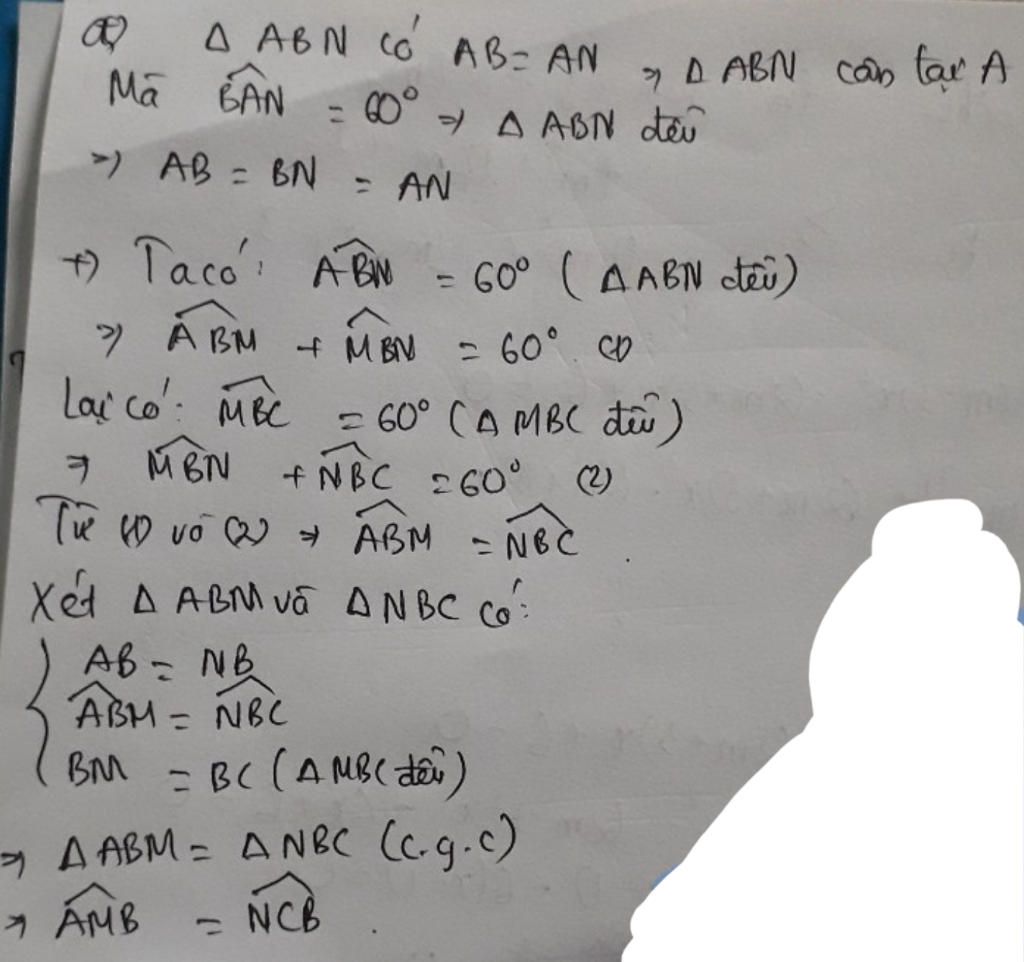 a) Δ ABN có AB = AN => Δ ABN cân tại A
Mà B̂AN = 60° => Δ ABN đều
=> AB = BN = AN
+) Ta có: ÂBN = 60° (Δ ABN đều)
=> ÂBM + M̂BN = 60° (1)
Lại có: M̂BC = 60° (Δ MBC đều)
=> M̂BN + N̂BC = 60° (2)
Từ (1) và (2) => ÂBM = N̂BC.
Xét Δ ABM và Δ NBC có:
AB = NB
ÂBM = N̂BC
BM = BC (Δ MBC đều)
=> Δ ABM = Δ NBC (c.g.c)
=> ÂMB = N̂CB.